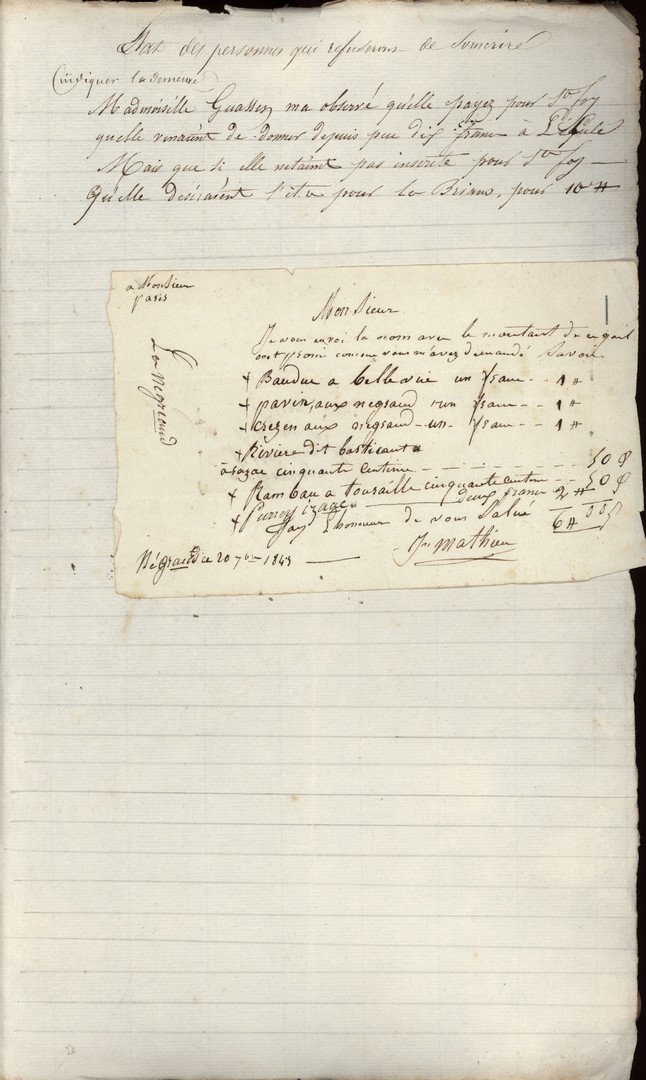 Etat des personnes qui refuseront de souscrire
(indiquer la demeure)
Madmoiselle Guassen ma observé qu'elle payez pour Ste foy
quelle venaint de donner depuis peu dix francs à L'école
Mais que si elle netaint pas inscrite pour Ste foy
Qu'elle desiraient l'etre pour la Briaux, pour 10 #
a Monsieur
paris
La Négreaud
Monsieur
Je vous envoi la nom avec le montant de ce quil
ont promi comme vous m'avez demandé Savoir
+ Baudue a bellevüe un franc - - 1 #
+ pavin, aux negraud un franc - - 1 #
+ crezen aux negraud un franc - - 1 #
+ Riviere dit basticant
a razac cinquante centime - - - 50
+ Rambau a touraille cinquante centime - - 50
+ izaac deux franc 2 #
Jay L'honneur de vous Salué 6 # 00
Jn Mathieu
Négraud ce 20 7bre 1845